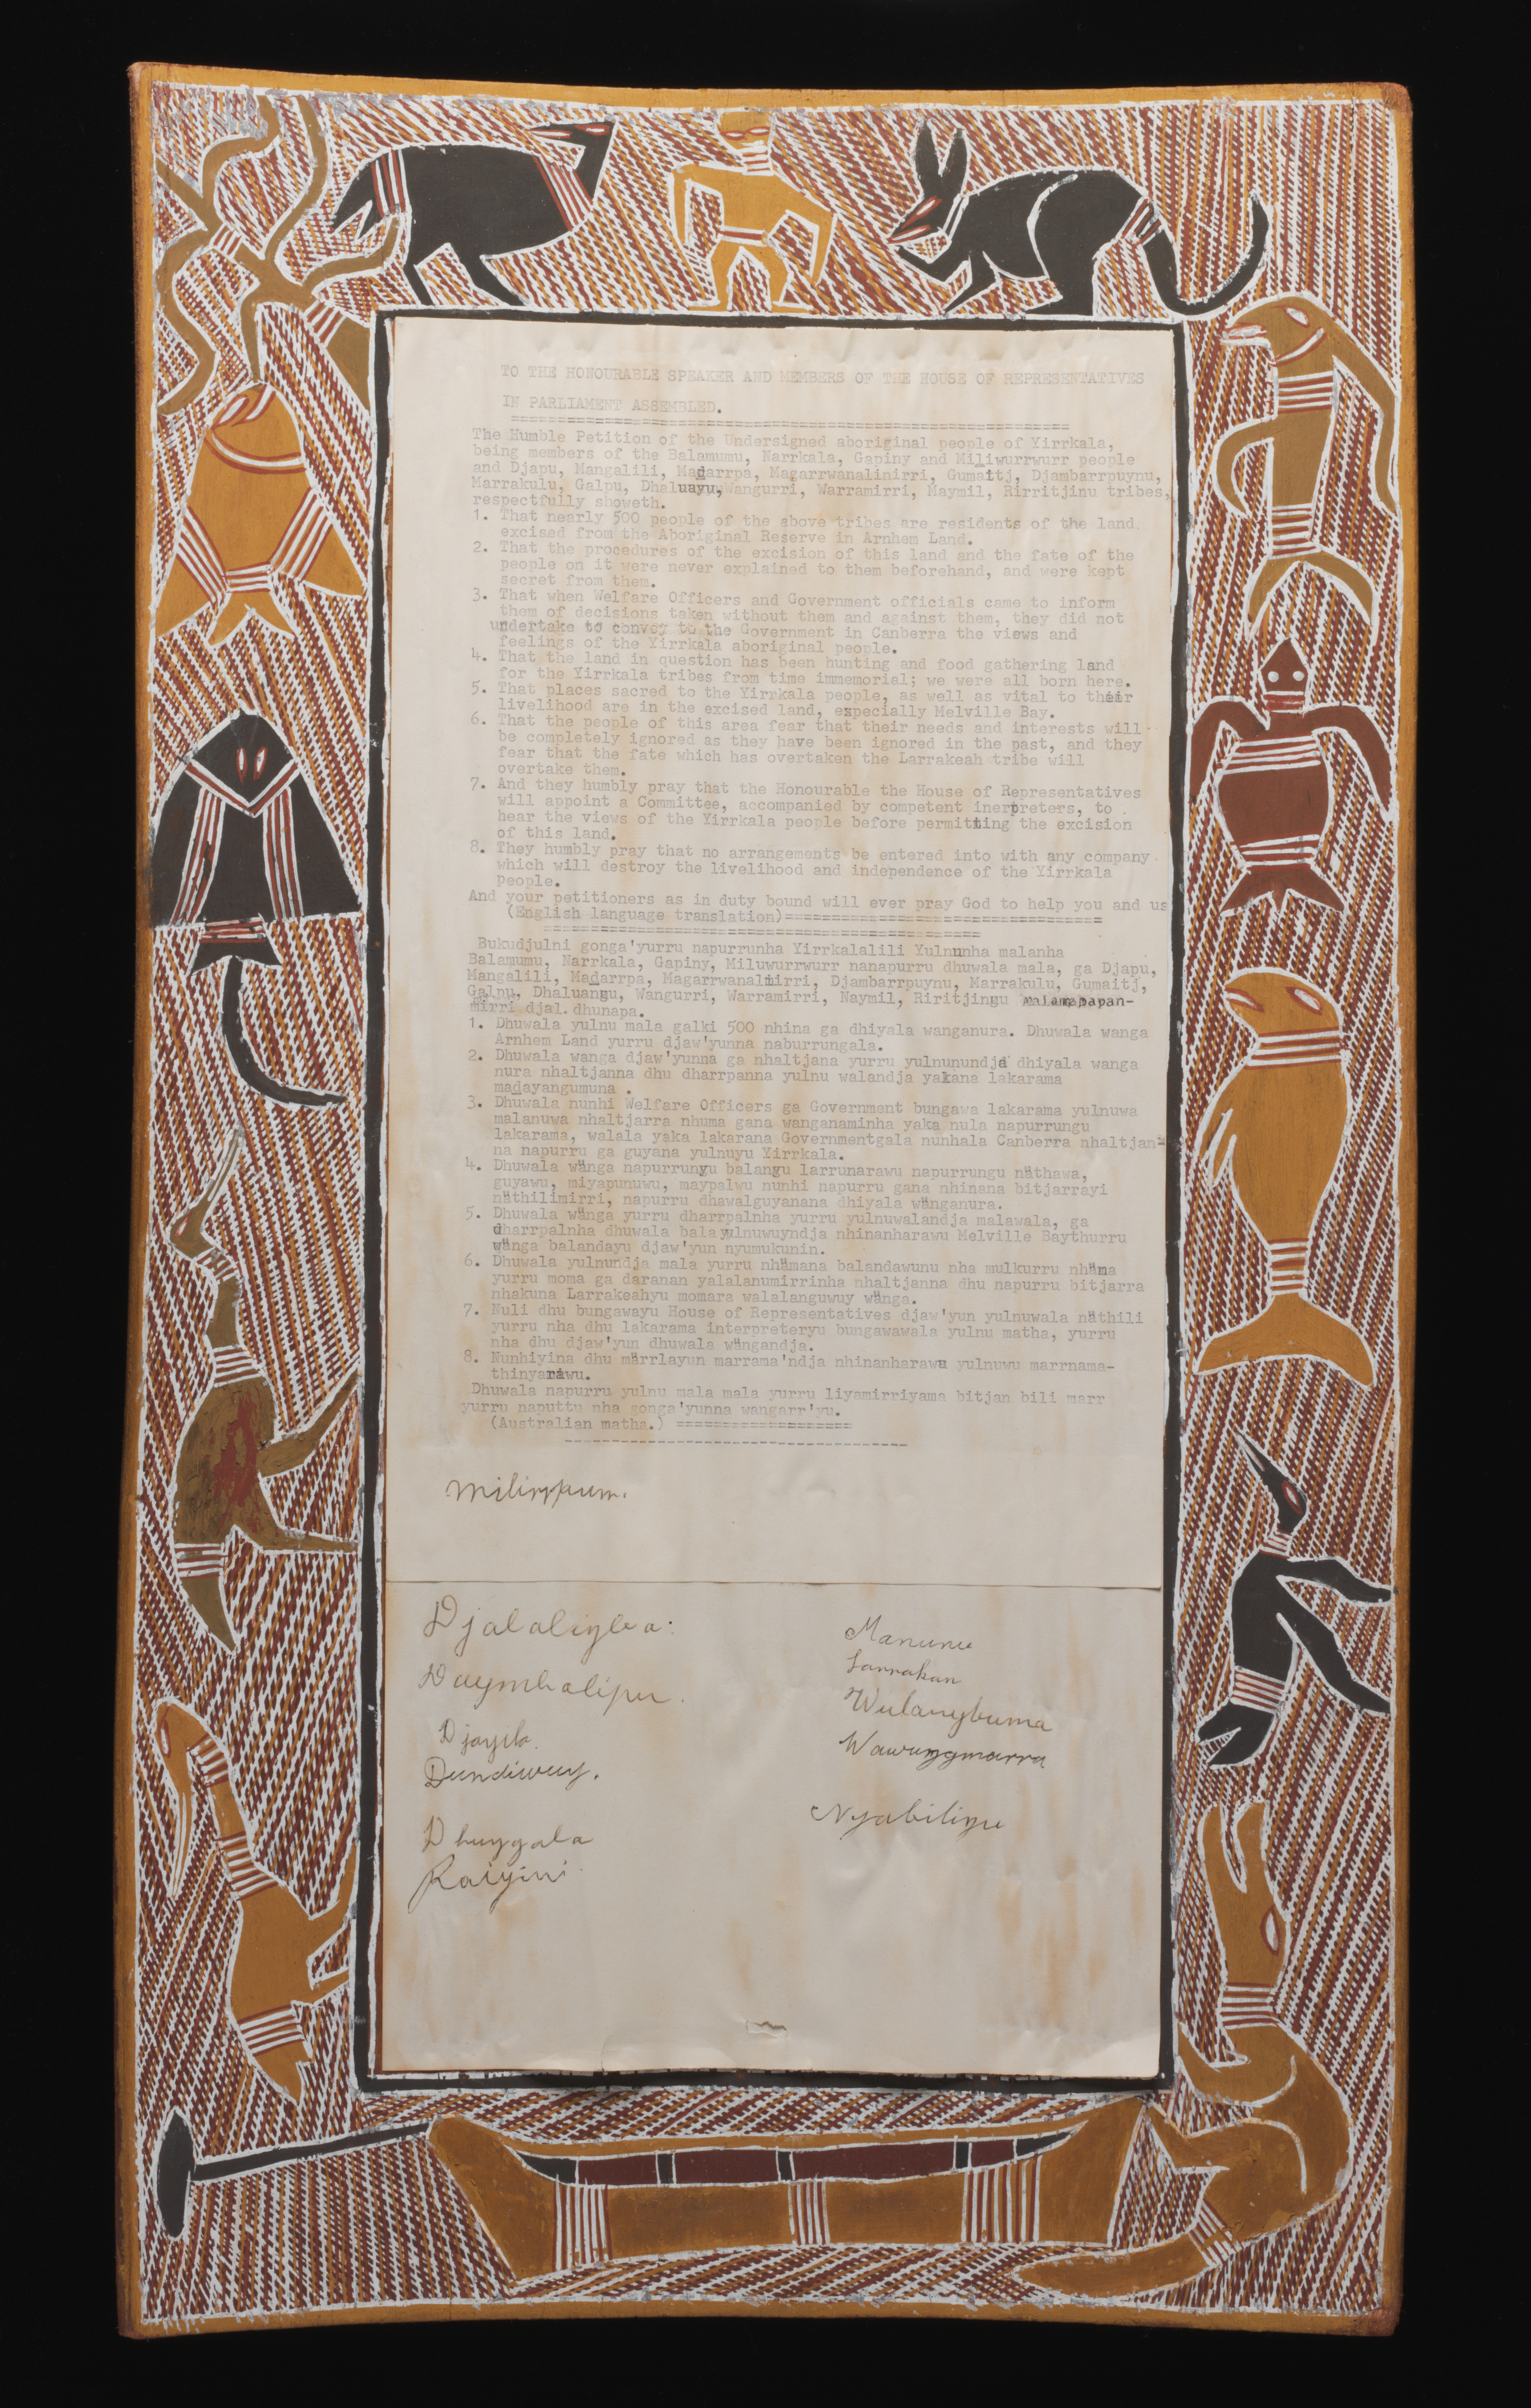 TO THE HONOURABLE SPEAKER AND MEMBERS OF THE HOUSE OF REPRESENTATIVES
IN PARLIAMENT ASSEMBLED.
The Humble Petition of the Undersigned aboriginal people of Yirrkala,
being members of the Balamumu, Narrkala, Gapiny and Miliwurrwurr people
and Djapu, Mangalili, Madarrpa, Magarrwanalinirri, Gumaitj, Djambarrpuynu,
Marrakulu, Galpu, Dhaluayu, Wangurri, Warramirri, Naymil, Rirritjinu tribes,
respectfully showeth.
1. That nearly 500 people of the above tribes are residents of the land
excised from the Aboriginal Reserve in Arnhem Land.
2. That the procedures of the excision of this land and the fate of the
people on it were never explained to them beforehand, and were kept
secret from them.
3. That when Welfare Officers and Government officials came to inform
them of decisions taken without them and against them, they did not
undertake to convey to the Government in Canberra the views and
feelings of the Yirrkala aboriginal people.
4. That the land in question has been hunting and food gathering land
for the Yirrkala tribes from time immemorial; we were all born here.
5. That places sacred to the Yirrkala people, as well as vital to their
livelihood are in the excised land, especially Melville Bay.
6. That the people of this area fear that their needs and interests will
be completely ignored as they have been ignored in the past, and they
fear that the fate which has overtaken the Larrakeah tribe will
overtake them.
7. And they humbly pray that the Honourable the House of Representatives
will appoint a Committee, accompanied by competent inerpreters, to
hear the views of the Yirrkala people before permitting the excision
of this land.
8. They humbly pray that no arrangements be entered into with any company
which will destroy the livelihood and independence of the Yirrkala
people.
And your petitioners as in duty bound will ever pray God to help you and us
(English language translation)==================================
Bukudjulni gonga'yurru napurrunha Yirrkalalili Yulnunha malanha
Balamumu, Narrkala, Gapiny, Miluwurrwurr nanapurru dhuwala mala, ga Djapu,
Mangalili, Madarrpa, Magarrwanalmirri, Djambarrpuynu, Marrakulu, Gumaitj,
Galpu, Dhaluangu, Wangurri, Warramirri, Naymil, Riritjingu malamapapan-
mirri djal dhunapa.
1. Dhuwala yulnu mala galki 500 nhina ga dhiyala wanganura. Dhuwala wanga
Arnhem Land yurru djaw'yunna naburrungala.
2. Dhuwala wanga djaw'yunna ga nhaltjana yurru yulnunundja dhiyala wanga
nura nhaltjanna dhu dharrpanna yulnu walandja yakana lakarama
madayangumuna .
3. Dhuwala nunhi Welfare Officers ga Government bungawa lakarama yulnuwa
malanuwa nhaltjarra nhuma gana wanganaminha yaka nula napurrungu
lakarama, walala yaka lakarana Governmentgala nunhala Canberra nhaltjan-
na napurru ga guyana yulnuyu Yirrkala.
4. Dhuwala wänga napurrungu balangu larrunarawu napurrungu näthawa,
guyawu, miyapunuwu, maypalwu nunhi napurru gana nhinana bitjarrayi
näthilimirri, napurru dhawalguyanana dhiyala wänganura.
5. Dhuwala wänga yurru dharrpalnha yurru yulnuwalandja malawala, ga
dharrpalnha dhuwala balayulnuwuyndja nhinanharawu Melville Baythurru
wänga balandayu djaw'yun nyumukunin.
6. Dhuwala yulnundja mala yurru nhämana balandawunu nha mulkurru nhäma
yurru moma ga daranan yalalanumirrinha nhaltjanna dhu napurru bitjarra
nhakuna Larrakeahyu momara walalanguwuy wänga.
7. Nuli dhu bungawayu House of Representatives djaw'yun yulnuwala näthili
yurru nha dhu lakarama interpreteryu bungawawala yulnu matha, yurru
nha dhu djaw'yun dhuwala wängandja.
8. Nunhiyina dhu märrlayun marrama'ndja nhinanharawu yulnuwu marrnama-
thinyarawu.
Dhuwala napurru yulnu mala mala yurru liyamirriyama bitjan bili marr
yurru naputtu nha gonga'yunna wangarr'yu.
(Australian matha.) ===================
Milirrpum.
Djalaliyba
Manunu
Daymbalipu.
Larrakan
Djayila.
Wulanybuma
Dundiwuy.
Wawunygmarra
Dhuygala
Nyabilinyu
Raiyini